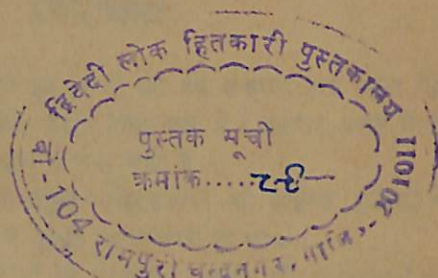 द्विवेदी लोक हितकारी पुस्तकालय
पुस्तक सूची
क्रमांक.....२९
बी-104 रामपुरी चन्द्रनगर, 201011